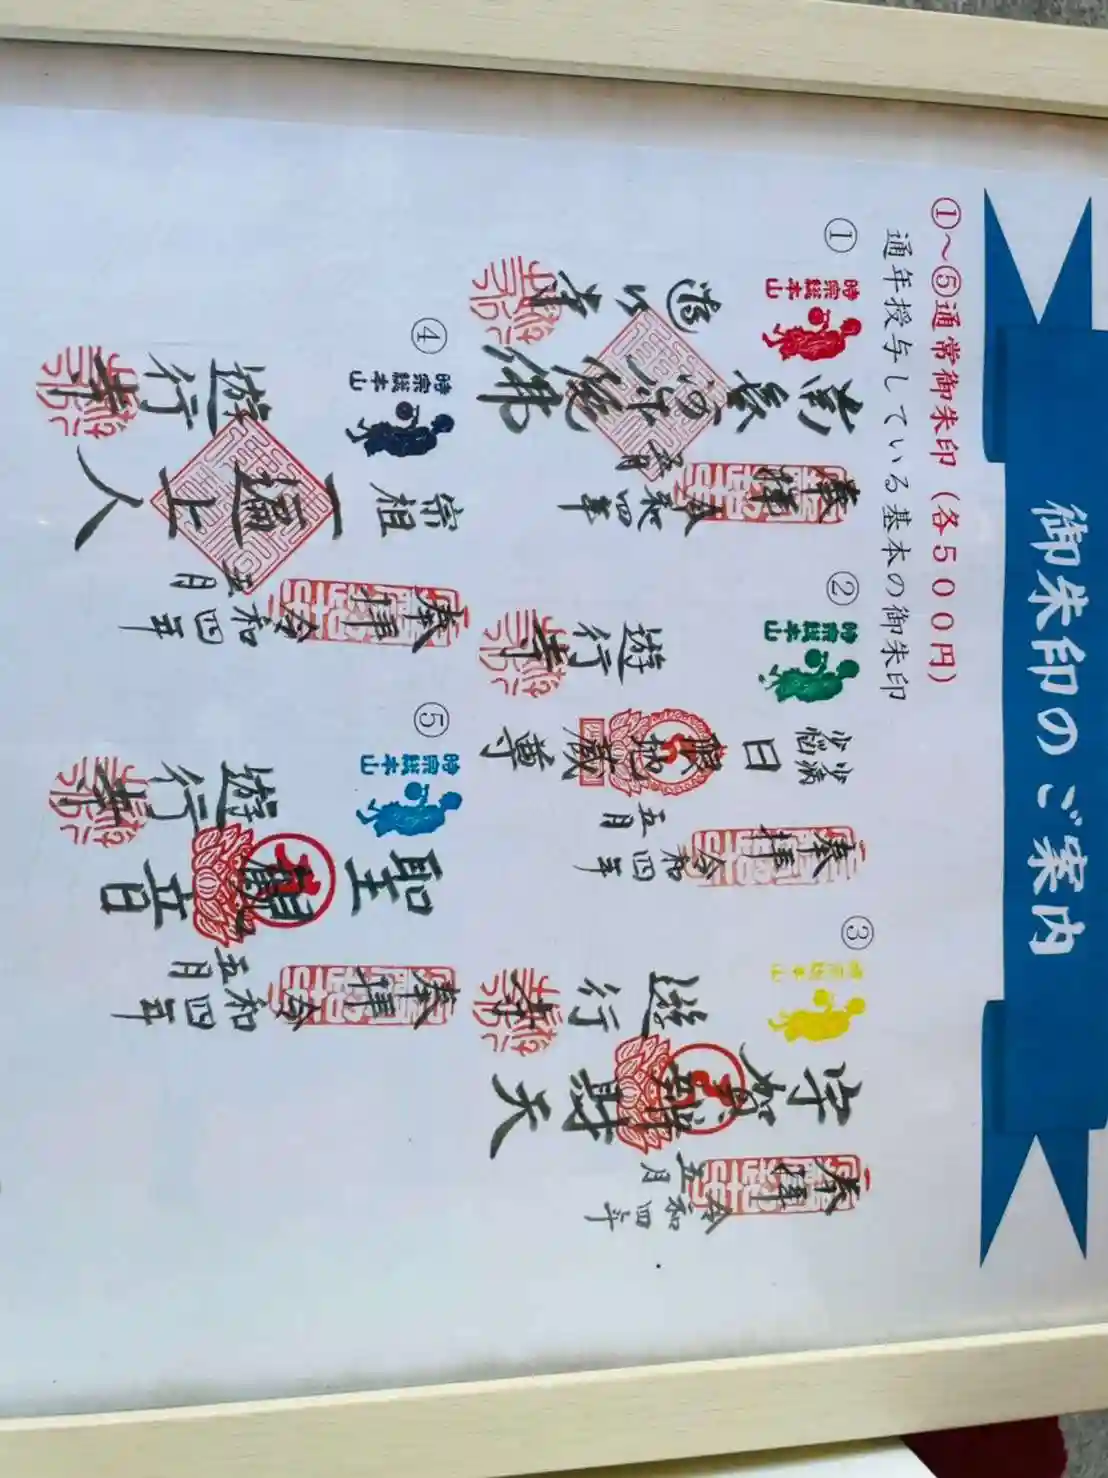 御朱印のご案内
①～⑤通常御朱印（各５００円）
通年授与している基本の御朱印
①
時宗総本山
奉拝
令和四年
五月
南無阿弥陀佛
②
時宗総本山
奉拝
令和四年
五月
少病
少悩
日限地蔵尊
遊行寺
③
時宗総本山
奉拝
令和四年
五月
宇賀弁財天
遊行寺
④
時宗総本山
奉拝
令和四年
五月
宗祖
一遍上人
遊行寺
⑤
時宗総本山
奉拝
令和四年
五月
聖観音
遊行寺